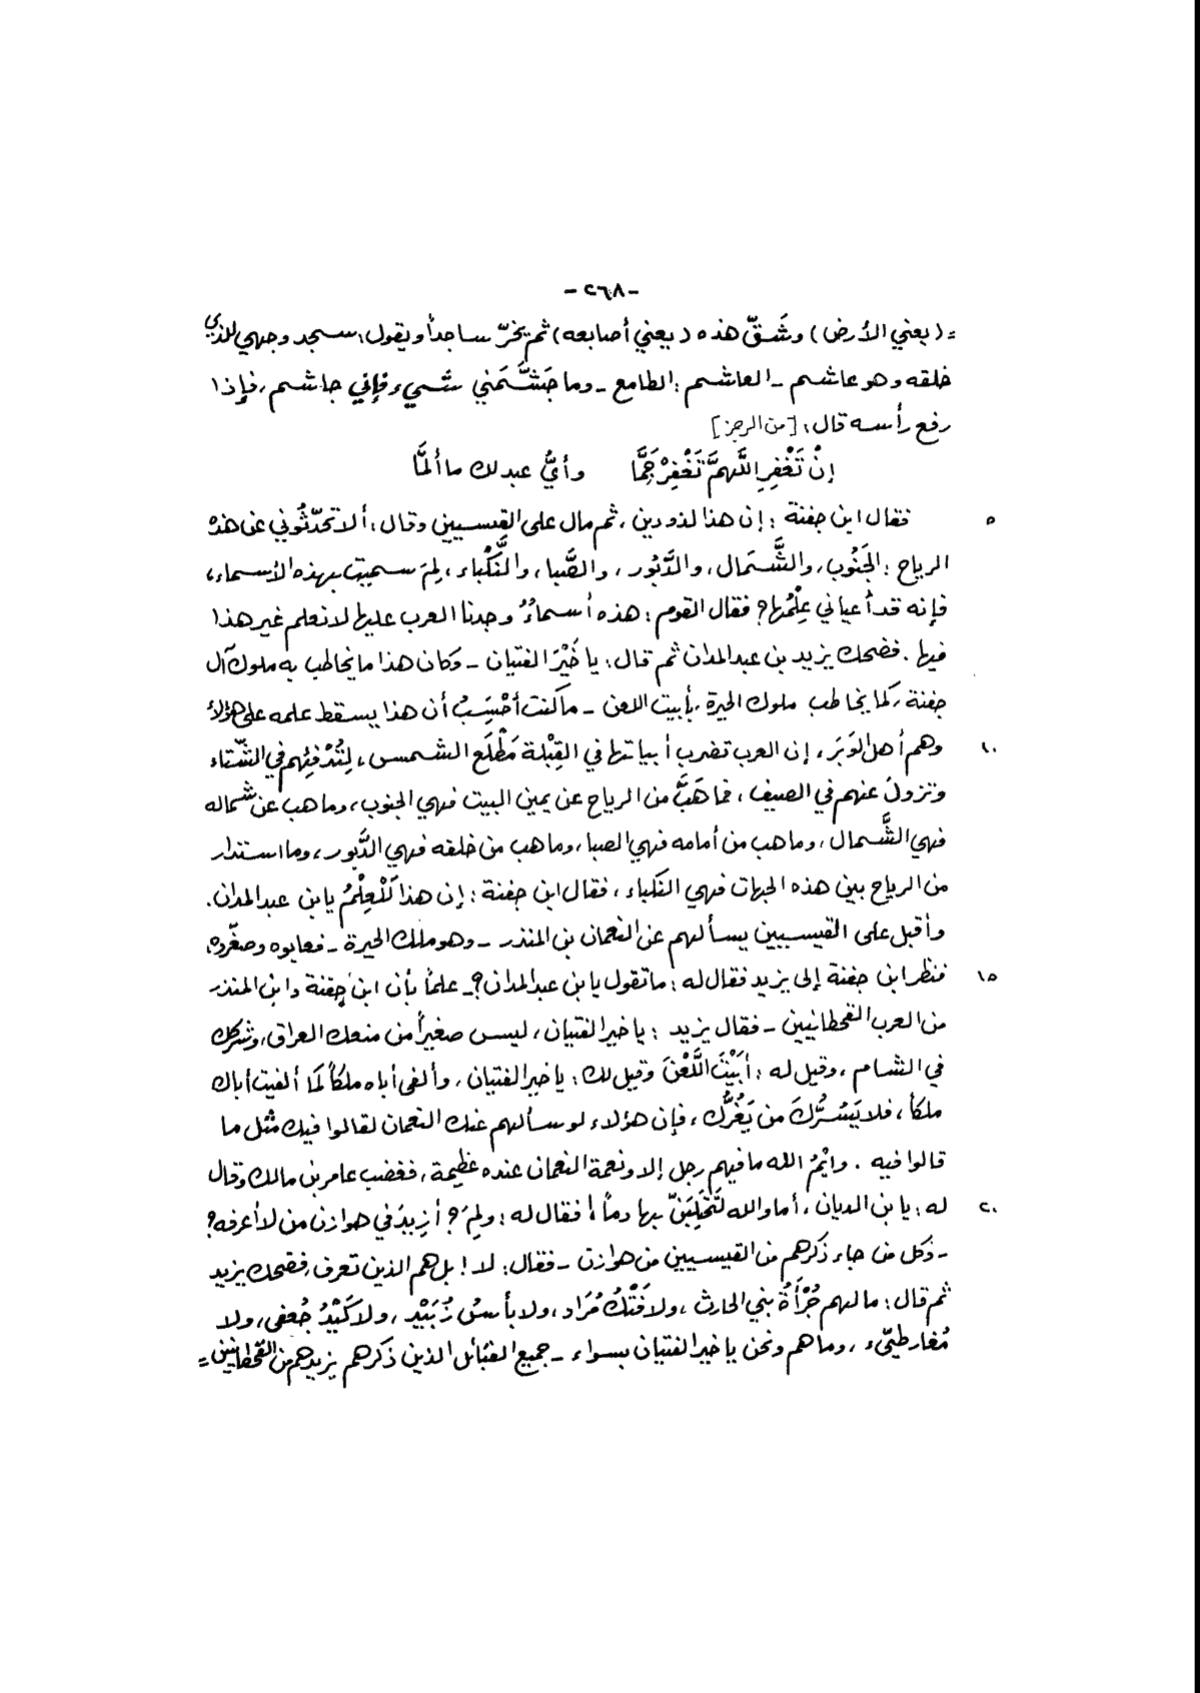 - ٢٦٨ -
= (يعني الأرض) وشَقّ هذه (يعني أصابعه) ثم يخرّ ساجداً ويقول: سجد وجهي للذي
خلقه وهو عاشم - العاشم: الطامع - وما جَشَّمَني شيء فإني جاشم، فإذا
رفع رأسه قال: [من الرجز]
إنْ تَغْفِرِ اللَّهمَّ تَغْفِرْ جَمَّا وأيُّ عبد لك ما ألمَّا
٥ فقال ابن جفنة: إن هذا لذو دين، ثم مال على القيسيين وقال: ألا تحدّثُوني عن هذه
الرياح: الجَنُوب، والشَّمال، والدَّبُور، والصَّبا، والنَّكْباء، لِمَ سميت بهذه الأسماء،
فإنه قد أعياني عِلْمُها؟ فقال القوم: هذه أسماءٌ وجدنا العرب عليها لا نعلم غير هذا
فيها. فضحك يزيد بن عبد المدان ثم قال: يا خَيْرَ الفتيان - وكان هذا ما يخاطب به ملوك آل
جفنة، كما يخاطب ملوك الحيرة، بأبيت اللعن - ما كنت أحْسَِبُ أن هذا يسقط علمه على هؤلاء
١٠ وهم أهل الوَبَر، إن العرب تضرب أبياتها في القِبْلة مَطْلَع الشمس، لِتُدْفئهم في الشّتاء
وتزولَ عنهم في الصيف، فما هَبَّ من الرياح عن يمين البيت فهي الجنوب، وما هب عن شماله
فهي الشَّمال، وما هب من أمامه فهي الصبا، وما هب من خلفه فهي الدَّبور، وما استدار
من الرياح بين هذه الجهات فهي النكباء، فقال ابن جفنة: إن هذا لَلْعِلْمُ يا بن عبد المدان.
وأقبل على القيسيين يسألهم عن النعمان بن المنذر - وهو ملك الحيرة - فعابوه وصغّروه،
١٥ فنظر ابن جفنة إلى يزيد فقال له: ما تقول يا بن عبد المدان؟ - علماً بأن ابن جفنة وابن المنذر
من العرب القحطانيين - فقال يزيد: يا خير الفتيان، ليس صغيراً من منعك العراق، وشركك
في الشام، وقيل له: أبَيْتَ اللَّعْنَ وقيل لك: يا خير الفتيان، وألفى أباه ملكاً كما ألفيت أباك
ملكاً، فلا يَسُرُّكَ من يَغُرُّك، فإن هؤلاء لو سألهم عنك النعمان لقالوا فيك مثل ما
قالوا فيه. وايْمُ الله ما فيهم رجل إلا ونعمة النعمان عنده عظيمة، فغضب عامر بن مالك وقال
٢٠ له: يا بن الديان، أما والله لَتَحْلِبَنّ بها دماً، فقال له: ولِمَ؟ أزِيدَ في هوازن من لا أعرفه؟
- وكل من جاء ذكرهم من القيسيين من هوازن - فقال: لا! بل هم الذين تعرف، فضحك يزيد
ثم قال: ما لهم جُرْأَةُ بني الحارث، ولا فَتْكُ مُرَاد، ولا بأسُ زُبَيْد، ولا كَيْدُ جُعفى، ولا
مُغار طيّء، وما هم ونحن يا خير الفتيان بسواء - جميع القبائل الذين ذكرهم يزيد هم من القحطانيين =